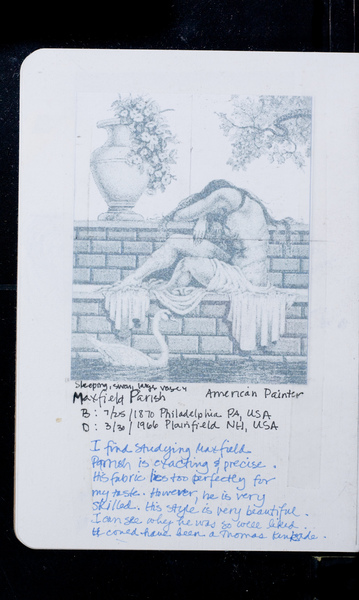 Sleeping, swan, large vase
Maxfield Parish American Painter
B: 7/25/1870 Philadelphia PA, USA
D: 3/30/1966 Plainfield NH, USA
I find studying Maxfield
Parrish is exacting & precise.
His fabric lies too perfectly for
my taste. However, he is very
skilled. His style is very beautiful.
I can see why he was so well liked.
He could have been a Thomas Kinkade.